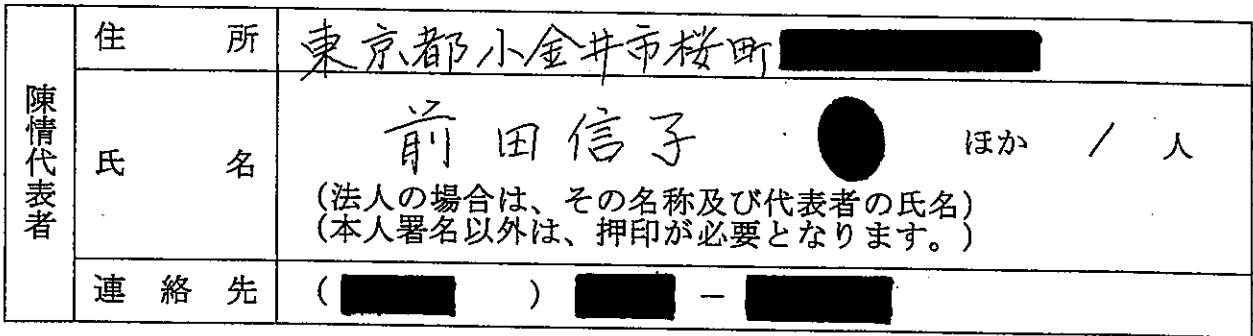 陳情代表者
住所 東京都小金井市桜町
氏名 前田信子 ほか 1 人
(法人の場合は、その名称及び代表者の氏名)
(本人署名以外は、押印が必要となります。)
連絡先 ( ) －